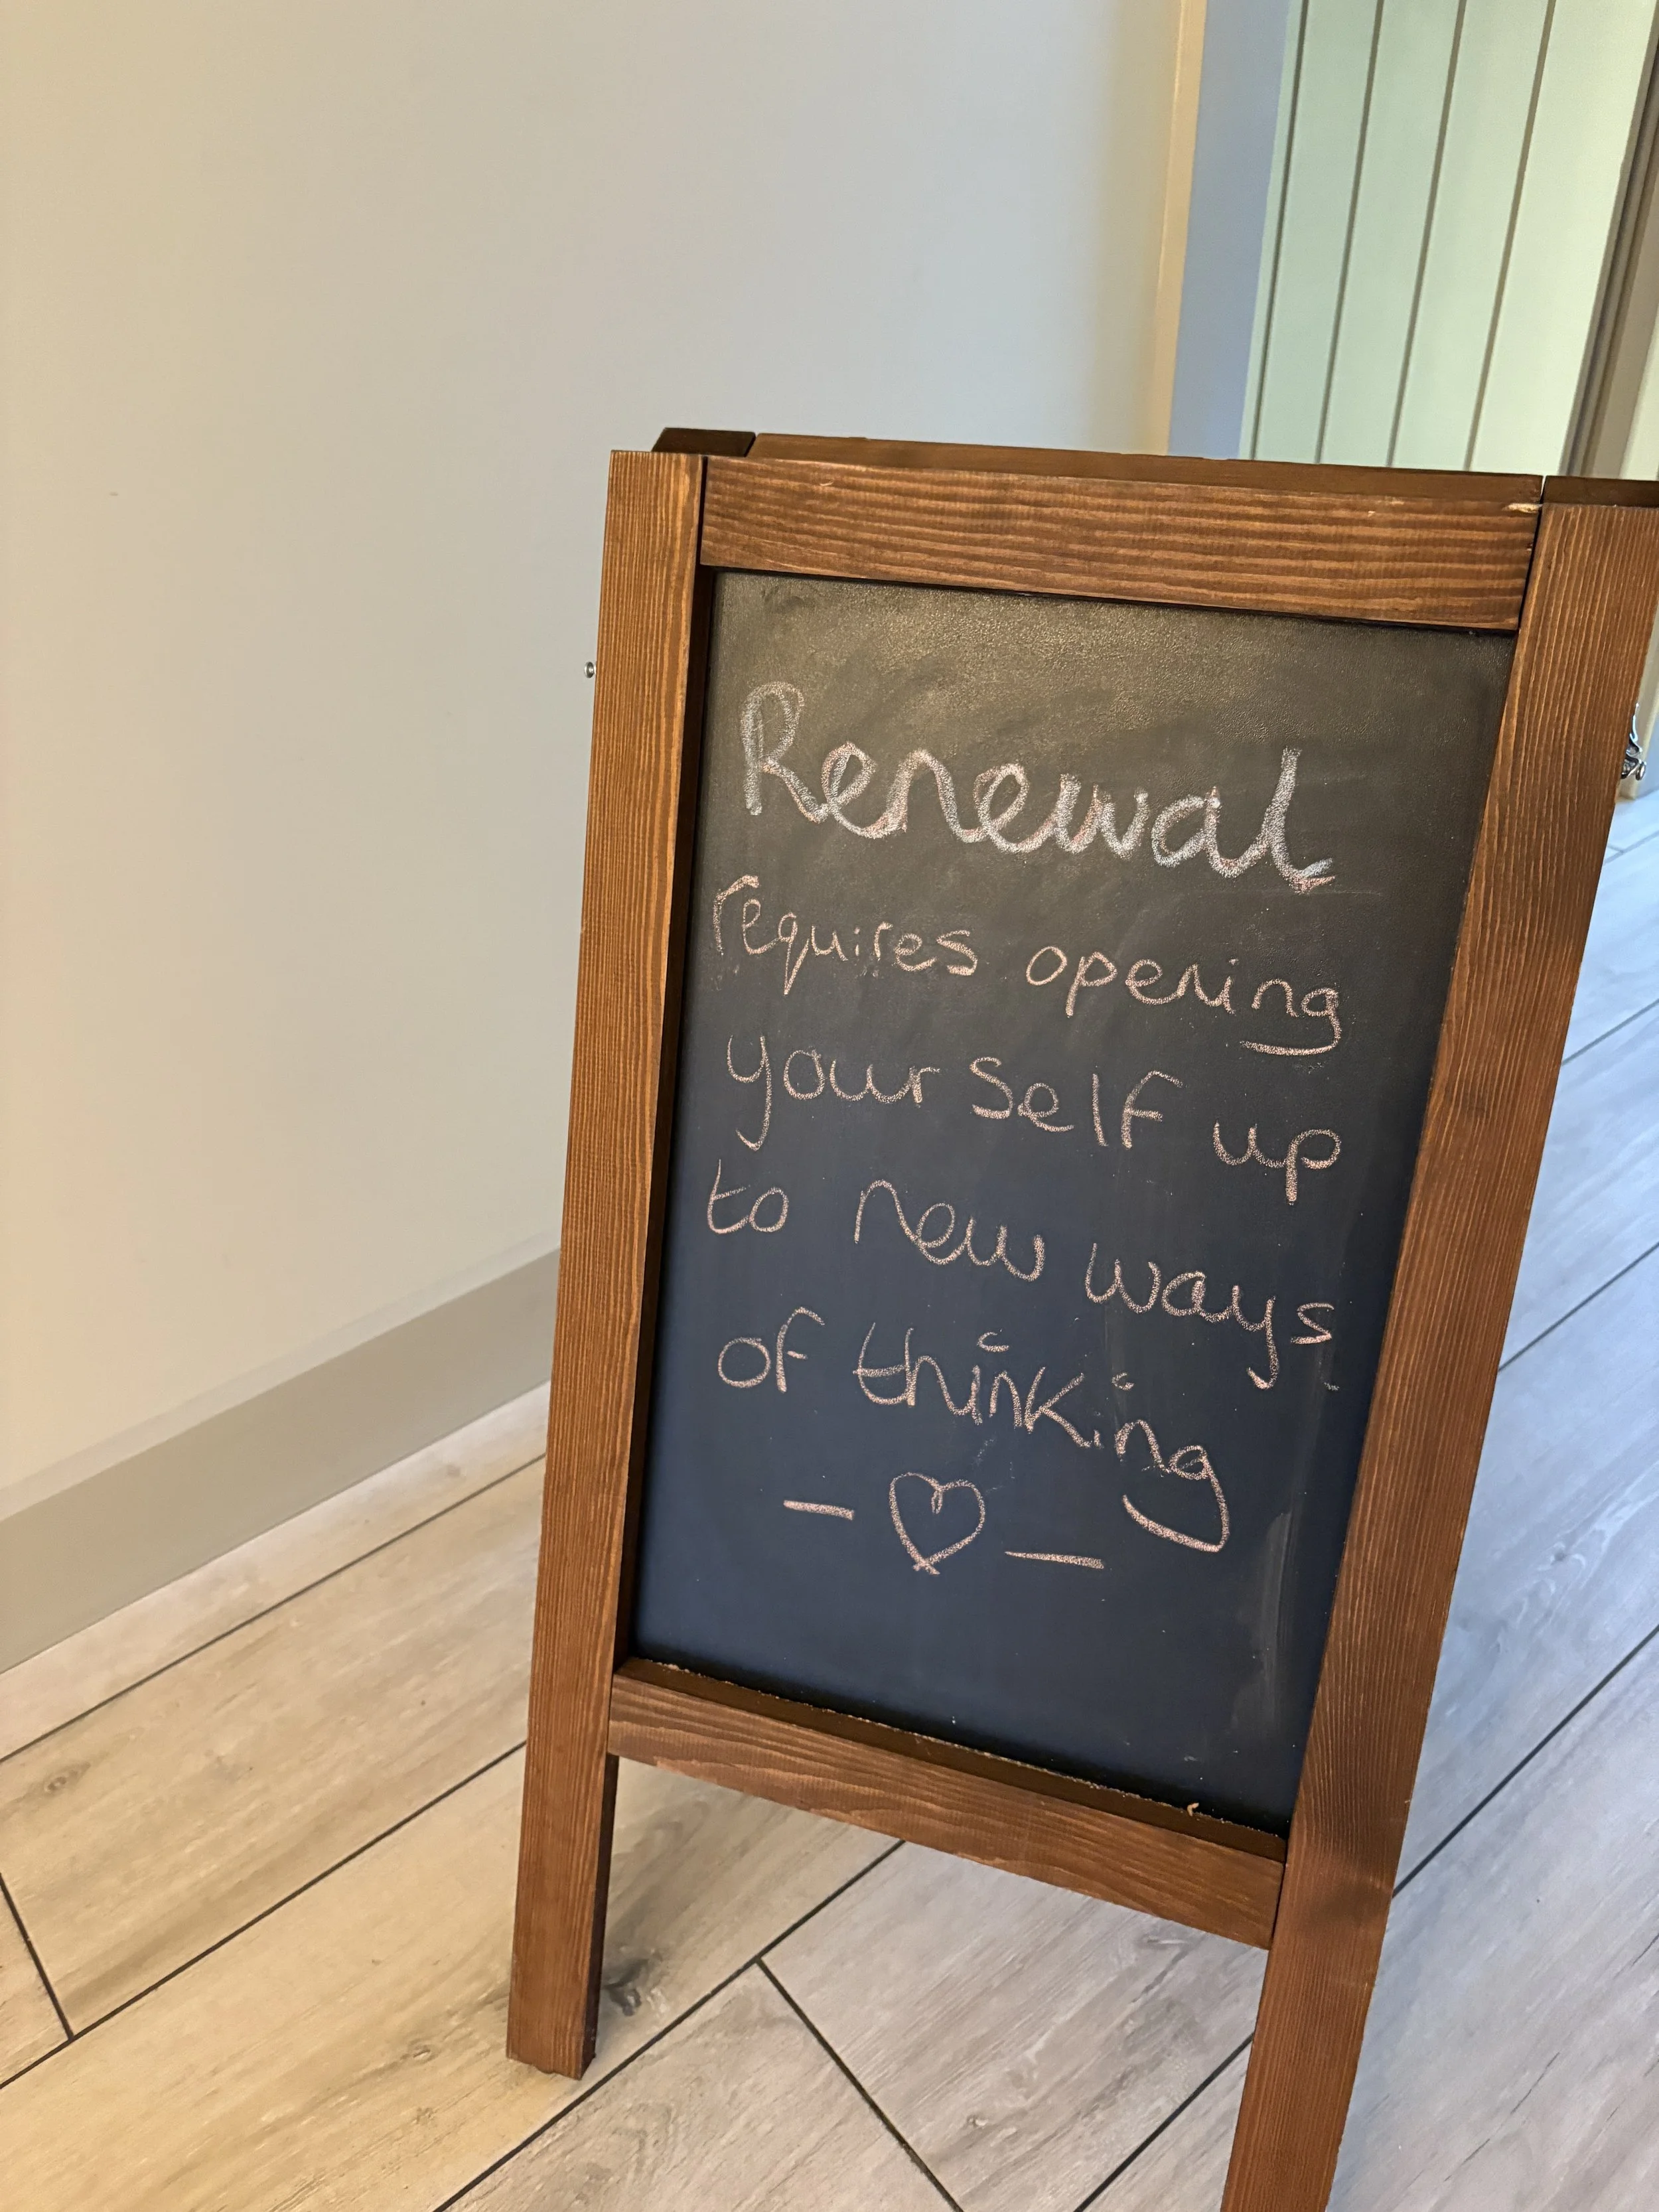 Renewal
requires opening
your self up
to new ways
of thinking